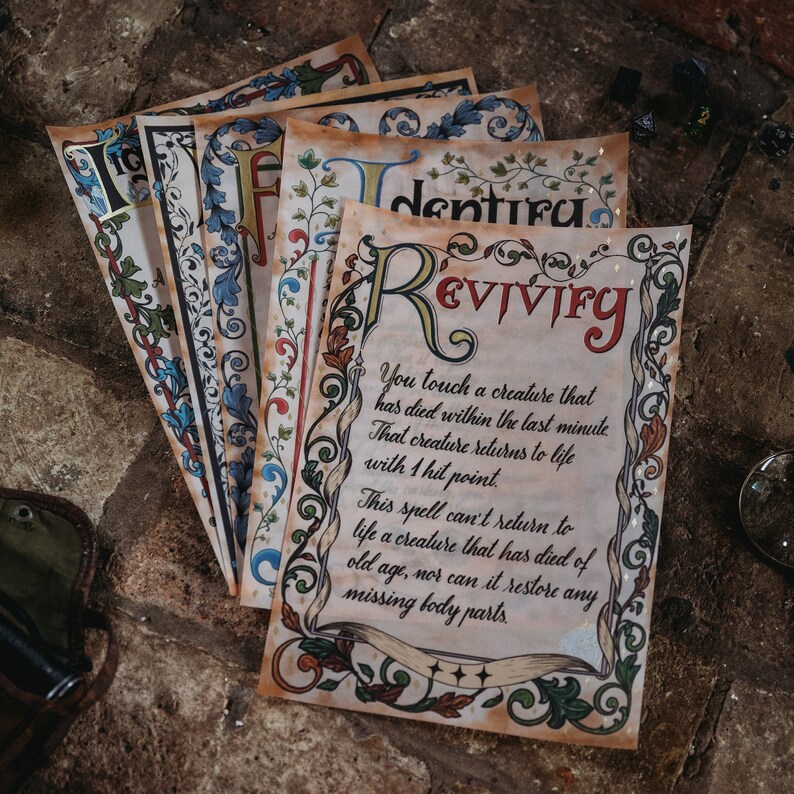 Identify
Revivify
You touch a creature that
has died within the last minute.
That creature returns to life
with 1 hit point.
This spell can't return to
life a creature that has died of
old age, nor can it restore any
missing body parts.